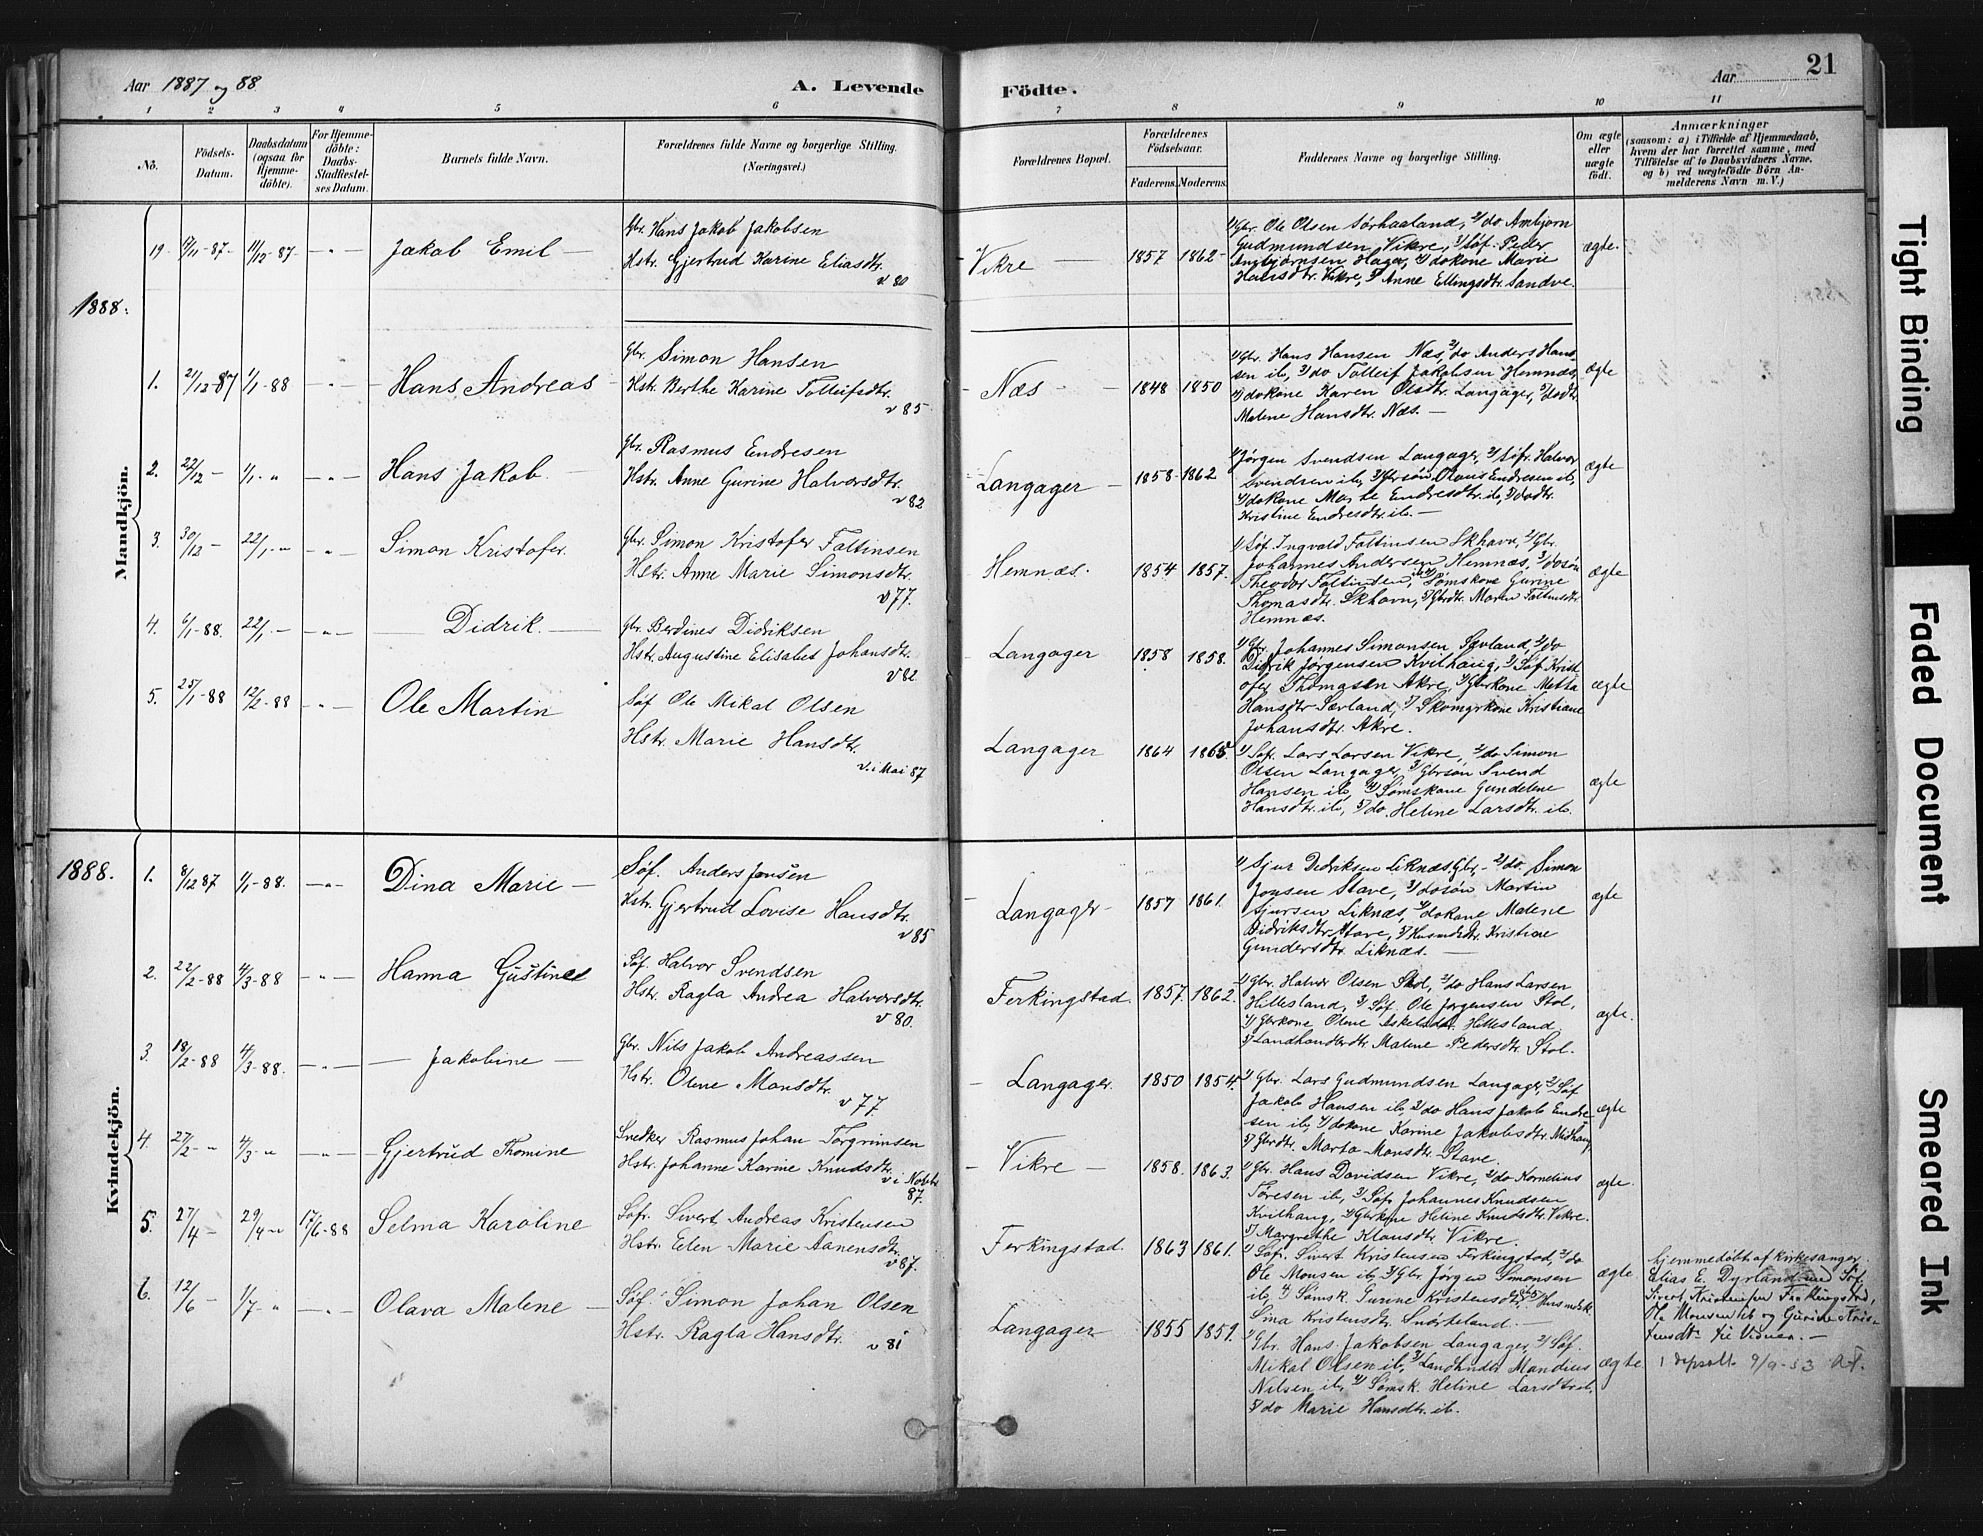 Aar 1887 og 88
A. Levende
Födte.
Aar
21
1 2 3 4 5 6 7 8 9 10 11
No.
Födsels-
Datum.
Daabsdatum
(ogsaa for
Hjemme-
döbte).
For Hjemme-
döbte:
Daabs-
Stadfæstel-
ses Datum.
Barnets fulde Navn.
Forældrenes fulde Navne og borgerlige Stilling.
(Næringsvei.)
Forældrenes Bopæl.
Forældrenes
Födselsaar.
Faderens. Moderens.
Faddernes Navne og borgerlige Stilling.
Om ægte
eller
uægte
födt.
Anmærkninger
(saasom: a) i Tilfælde af Hjemmedaab,
hvem der har forrettet samme, med
Tilföielse af to Daabsvidners Navne.
og b) ved uægtefödte Börn An-
melderens Navn m. V.)
Mandkjön.
19 11/12-87- -"- Jakob Emil -
Gbr. Hans Jakob Jakobsen
Hstr. Gjertrud Karine Eliasdtr.
v 80
Vikre 1857 1862-
1/ Gbr. Ole Olsen Sørhaaland, 2/ do Ambjørn
Gudmundsen Vikre, 3/ Søf. Peder
Ambjørnsen Haga, 4/ dokone Marie
Hansdtr. Vikre, 5/ Anne Ellingsdtr. Sandve.
ægte.
1888.
1. 21/12-87 1/1-88 -"- Hans Andreas
Gbr. Simon Hansen
Hstr. Berthe Karine Tolleifsdtr.
v 85.
Næs 1848 1850
1/ Gbr. Hans Hansen Næs, 2/ do Anders Han-
sen ib, 3/ do Tolleif Jakobsen Hemnæs,
4/ dokone Karen Olsdtr. Langåger, 5/ dodtr.
Malene Hansdtr. Næs. -
ægte
2. 22/12 - 1/1 - " -"- Hans Jakob
Gbr. Rasmus Endresen
Hstr. Anne Gurine Halvorsdtr.
v 82
Langager 1858- 1862
1/ Jørgen Svendsen Langager, 2/ Søfr. Halvor
Svendsen ib, 3/ Gbrsøn Olaus Endresen ib,
4/ dokone Marte Endresdtr. ib, 5/ dodtr.
Kristine Endresdtr. ib. -
ægte
3. 30/12 - 22/1 - " -"- Simon Kristofer
Gbr. Simon Kristofer Faltinsen
Hstr. Anne Marie Simonsdtr.
v 77.
Hemnæs. 1854 1857.
1/ Søf. Ingvald Faltinsen Skhavn, 2/ Gbr.
Johannes Andersen Hemnæs, 3/ dosøn
Theodor Faltinsen ib, 4/ Sømskone Gurine
Thomasdtr. Skhavn, 5/ Gbrdtr. Maren Faltinsdtr.
Hemnæs.
ægte
4. 6/1-88. 22/1 - -"- Didrik.
Gbr. Berdines Didriksen
Hstr. Augustine Elisabet Johansdtr.
v 82
Langager 1858 1858.
1/ Gbr. Johannes Simonsen Sævland, 2/ do
Didrik Jørgensen Kvilhaug, 3/ Søf. Krist-
ofer Thomasen Akre, 4/ Gbrkone Metta
Hansdtr. Sævland, 5/ Skomgrkone Kristiane
Johansdtr. Akre.
ægte
5. 25/1-88 12/2-88 -"- Ole Martin
Søf. Ole Mikal Olsen
Hstr. Marie Hansdtr.
v. i Mai 87
Langager 1864 1865
1/ Søf. Lars Larsen Vikre, 2/ do Simon
Olsen Langager, 3/ Gbrsøn Svend
Hansen ib, 4/ Sømskone Gundelene
Hansdtr. ib, 5/ do. Heline Larsdtr. ib.
ægte
Kvindekjön.
1888. 1. 8/12 87 1/1-88. -"- Dina Marie -
Søf. Anders Jansen
Hstr. Gjertrud Lovise Hansdtr.
v 85
Langager- 1857 1861.
1/ Sjur Didriksen Liknæs, Gbr. - 2/ do. Simon
Jonsen Stave, 3/ dosøn Martin
Sjursen Liknæs, 4/ dokone Malene
Didriksdtr. Stave, 5/ Kristiane
Gundersdtr. Liknæs. -
ægte
2. 22/2-88 4/3-88 -"- Hanna Gustine
Søf. Halvor Svendsen
Hstr. Ragla Andrea Halvorsdtr.
v 80.
Ferkingstad 1857. 1862.
1/ Gbr. Halvor Olsen Stol, 2/ do Hans Larsen
Hillesland, 3/ Søf. Ole Jørgensen Stol,
4/ Gbrkone Oline Hillesland
5/ Landhandlerdtr Malene Pedersdtr. Stol.
ægte.
3. 18/2-88 4/3-88. -"- Jakobine -
Gbr. Nils Jakob Andreassen
Hstr. Oline Monsdtr.
v 77.
Langager. 1850 1854.
1/ Gbr. Lars Gudmundsen Langager, 2/ Søf.
Jakob Hansen ib, 3/ do Hans Jakob Endre-
sen ib, 4/ dokone Karine Jakobsdtr. Midhaug,
5/ Gbrdtr. Marta Monsdtr. Stave.
ægte
4. 27/2- " 4/3- " -"- Gjertrud Thomine
Snedker Rasmus Johan Torgrimsen
Hstr. Johanne Karine Knudsdtr.
v i Novbr.
87.
Vikre - 1858. 1863.
1/ Gbr. Hans Davidsen Vikre, 2/ do Kornelius
Tøresen ib, 3/ Søfr. Johannes Knudsen
Kvilhaug, 4/ Gbrkone Heline Knudsdtr. Vikre.
5/ Margrethe Klausdtr. Vikre.
ægte.
5. 27/4 - 29/4- " 17/6-88 Selma Karoline
Søfr. Sivert Andreas Kristensen
Hstr. Elen Marie Aanensdtr.
v 87.
Ferkingstad 1863 1861.
1/ Søfr. Sivert Kristensen Ferkingstad, 2/ do
Ole Monsen ib, 3/ Gbr. Jørgen Simonsen
ib, 4/ Sømsk. Gurine Kristensdtr.
Sina Kristensdtr. Snørteland. -
ægte
hjemmedöbt af kirkesanger
Elias E. Dyrland med Søf.
Sivert Kristensen Ferkingstad,
Ole Monsen ib og Gurine Kris-
tensdtr. til Vidner. -
6. 12/6 - 1/7- " -"- Olava Malene -
Søf. Simon Johan Olsen
Hstr. Ragla Hansdtr.
v 81
Langager 1855 1859.
1/ Gbr. Hans Jakobsen Langager, 2/ Søf.
Mikal Olsen ib, 3/ Mandius
Nilsen ib, 4/ Sømsk. Heline Larsdtr. ib,
5/ do Marie Hansdtr. ib.
ægte
9/9-53
Tight Binding
Faded Document
Smeared Ink